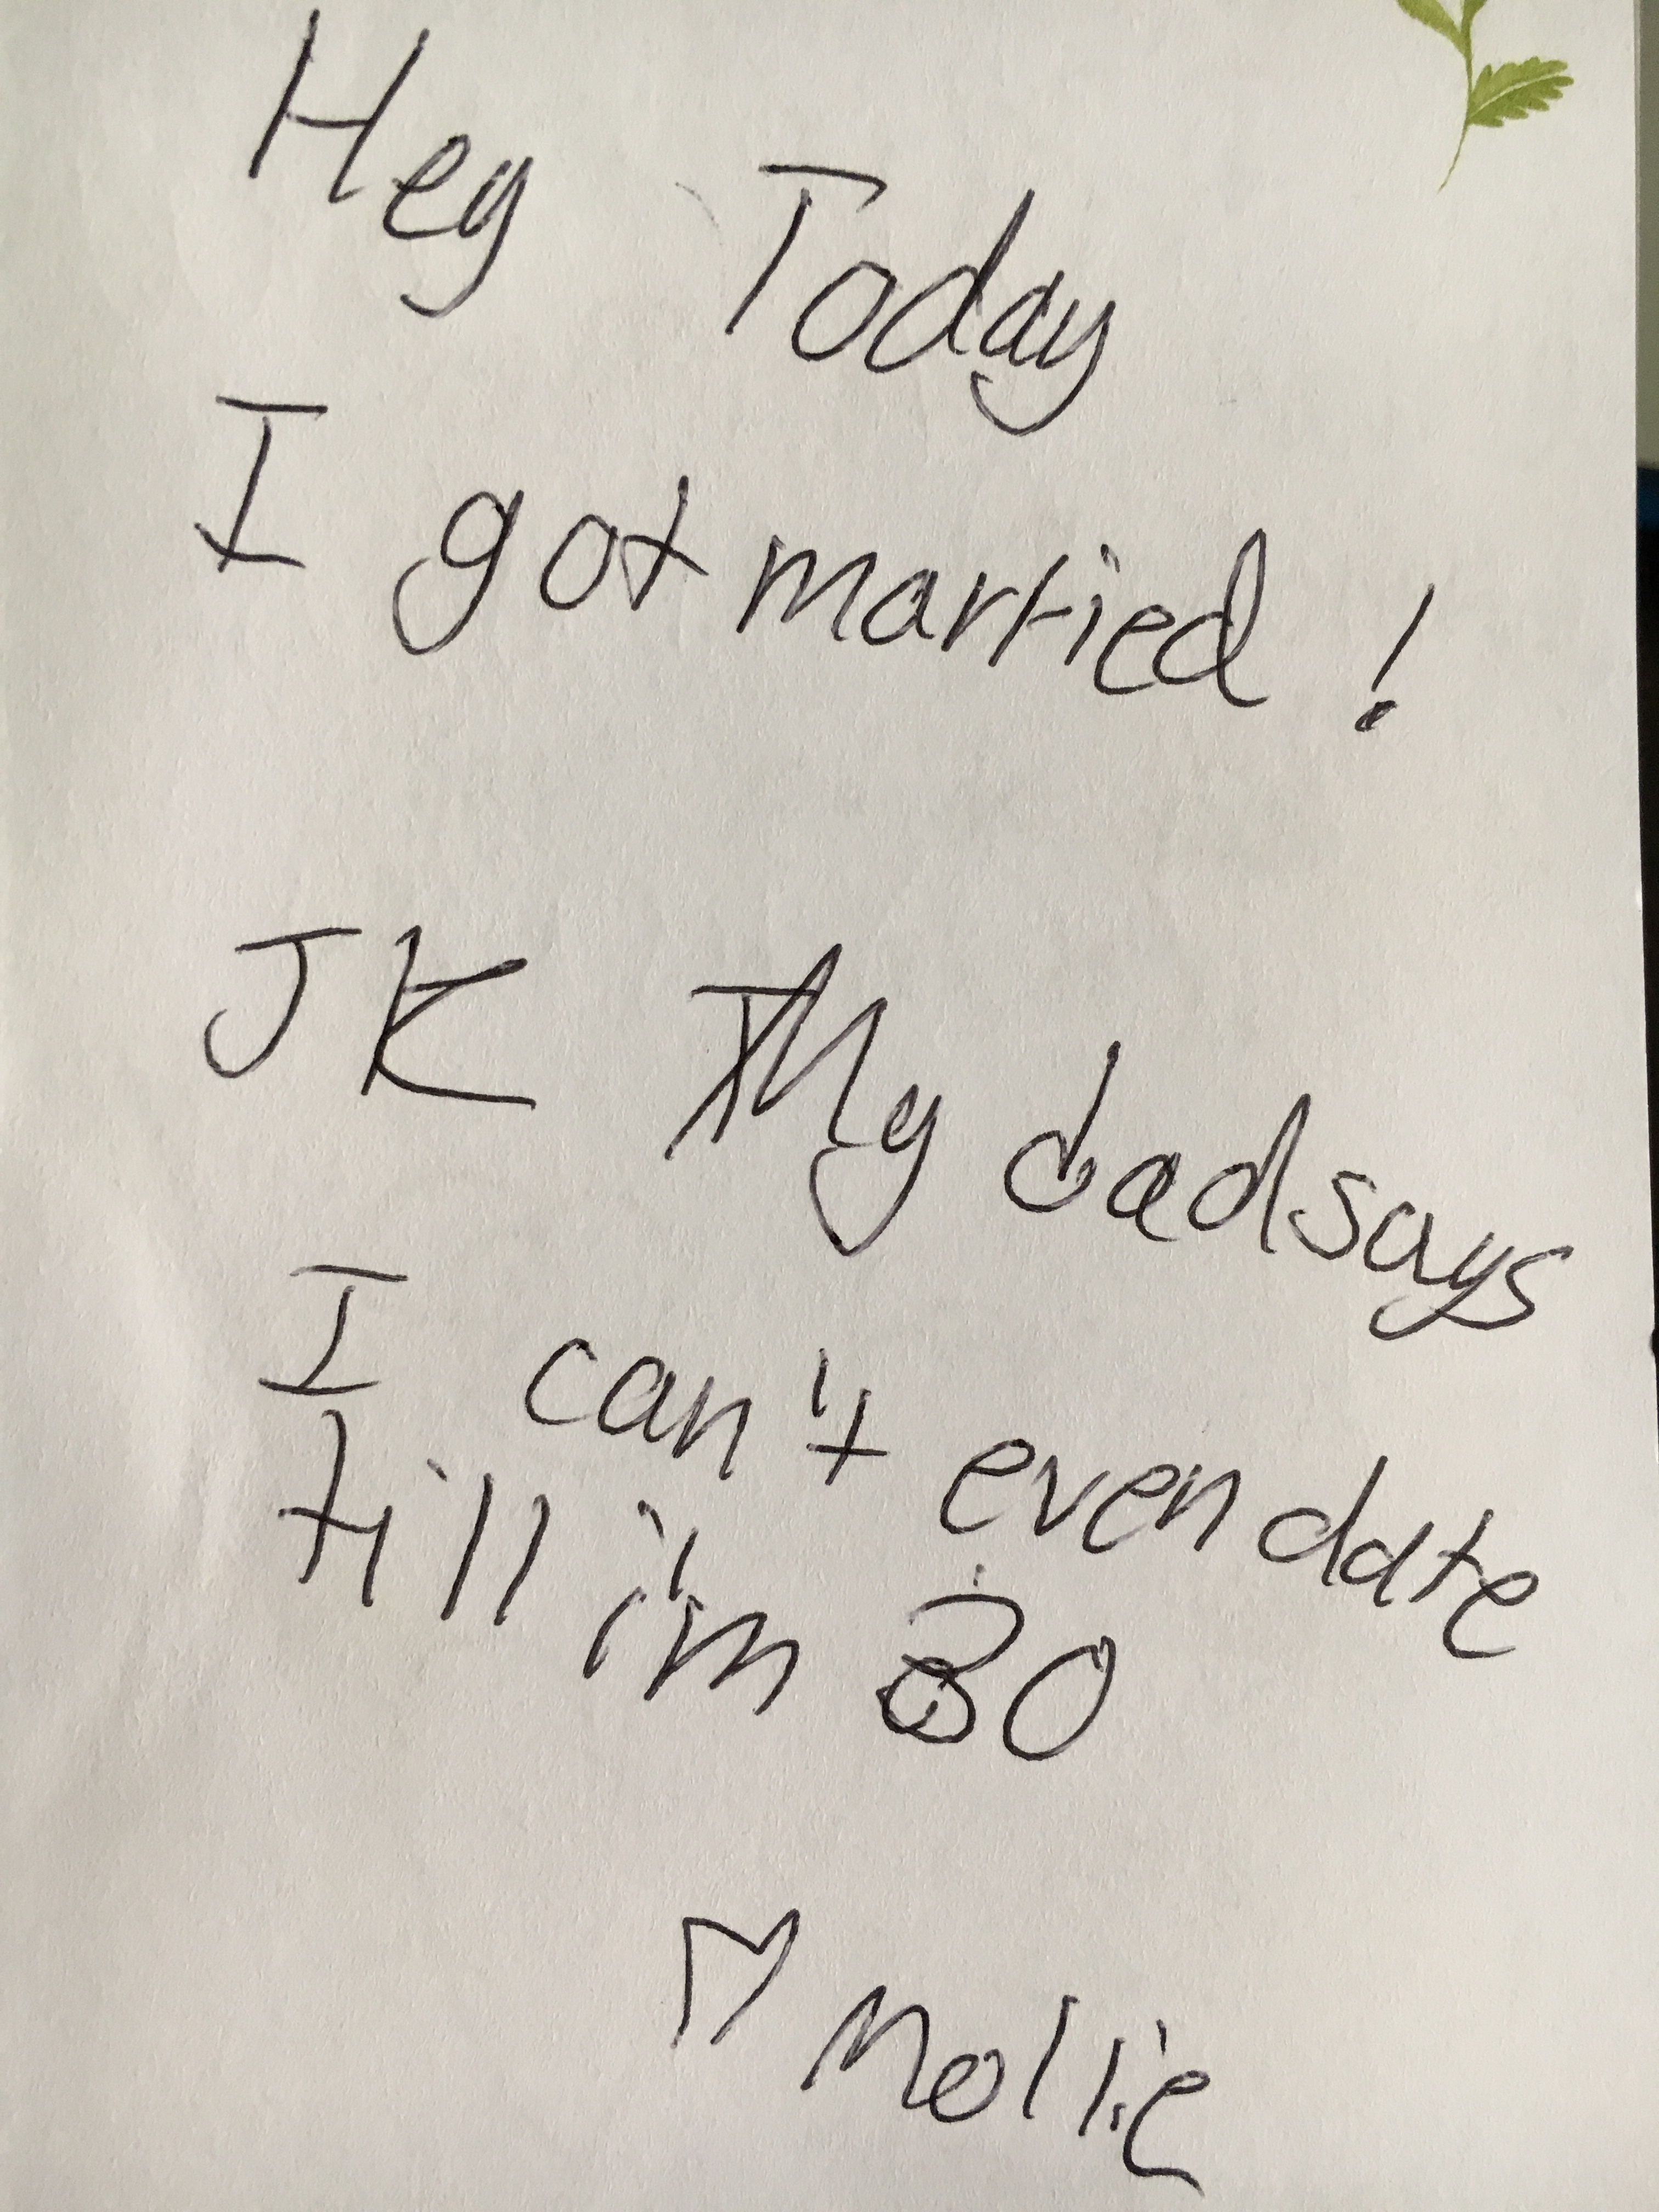 Hey Today
I got married!
JK My dad says
I can't even date
till i'm 30
♡ Mollie